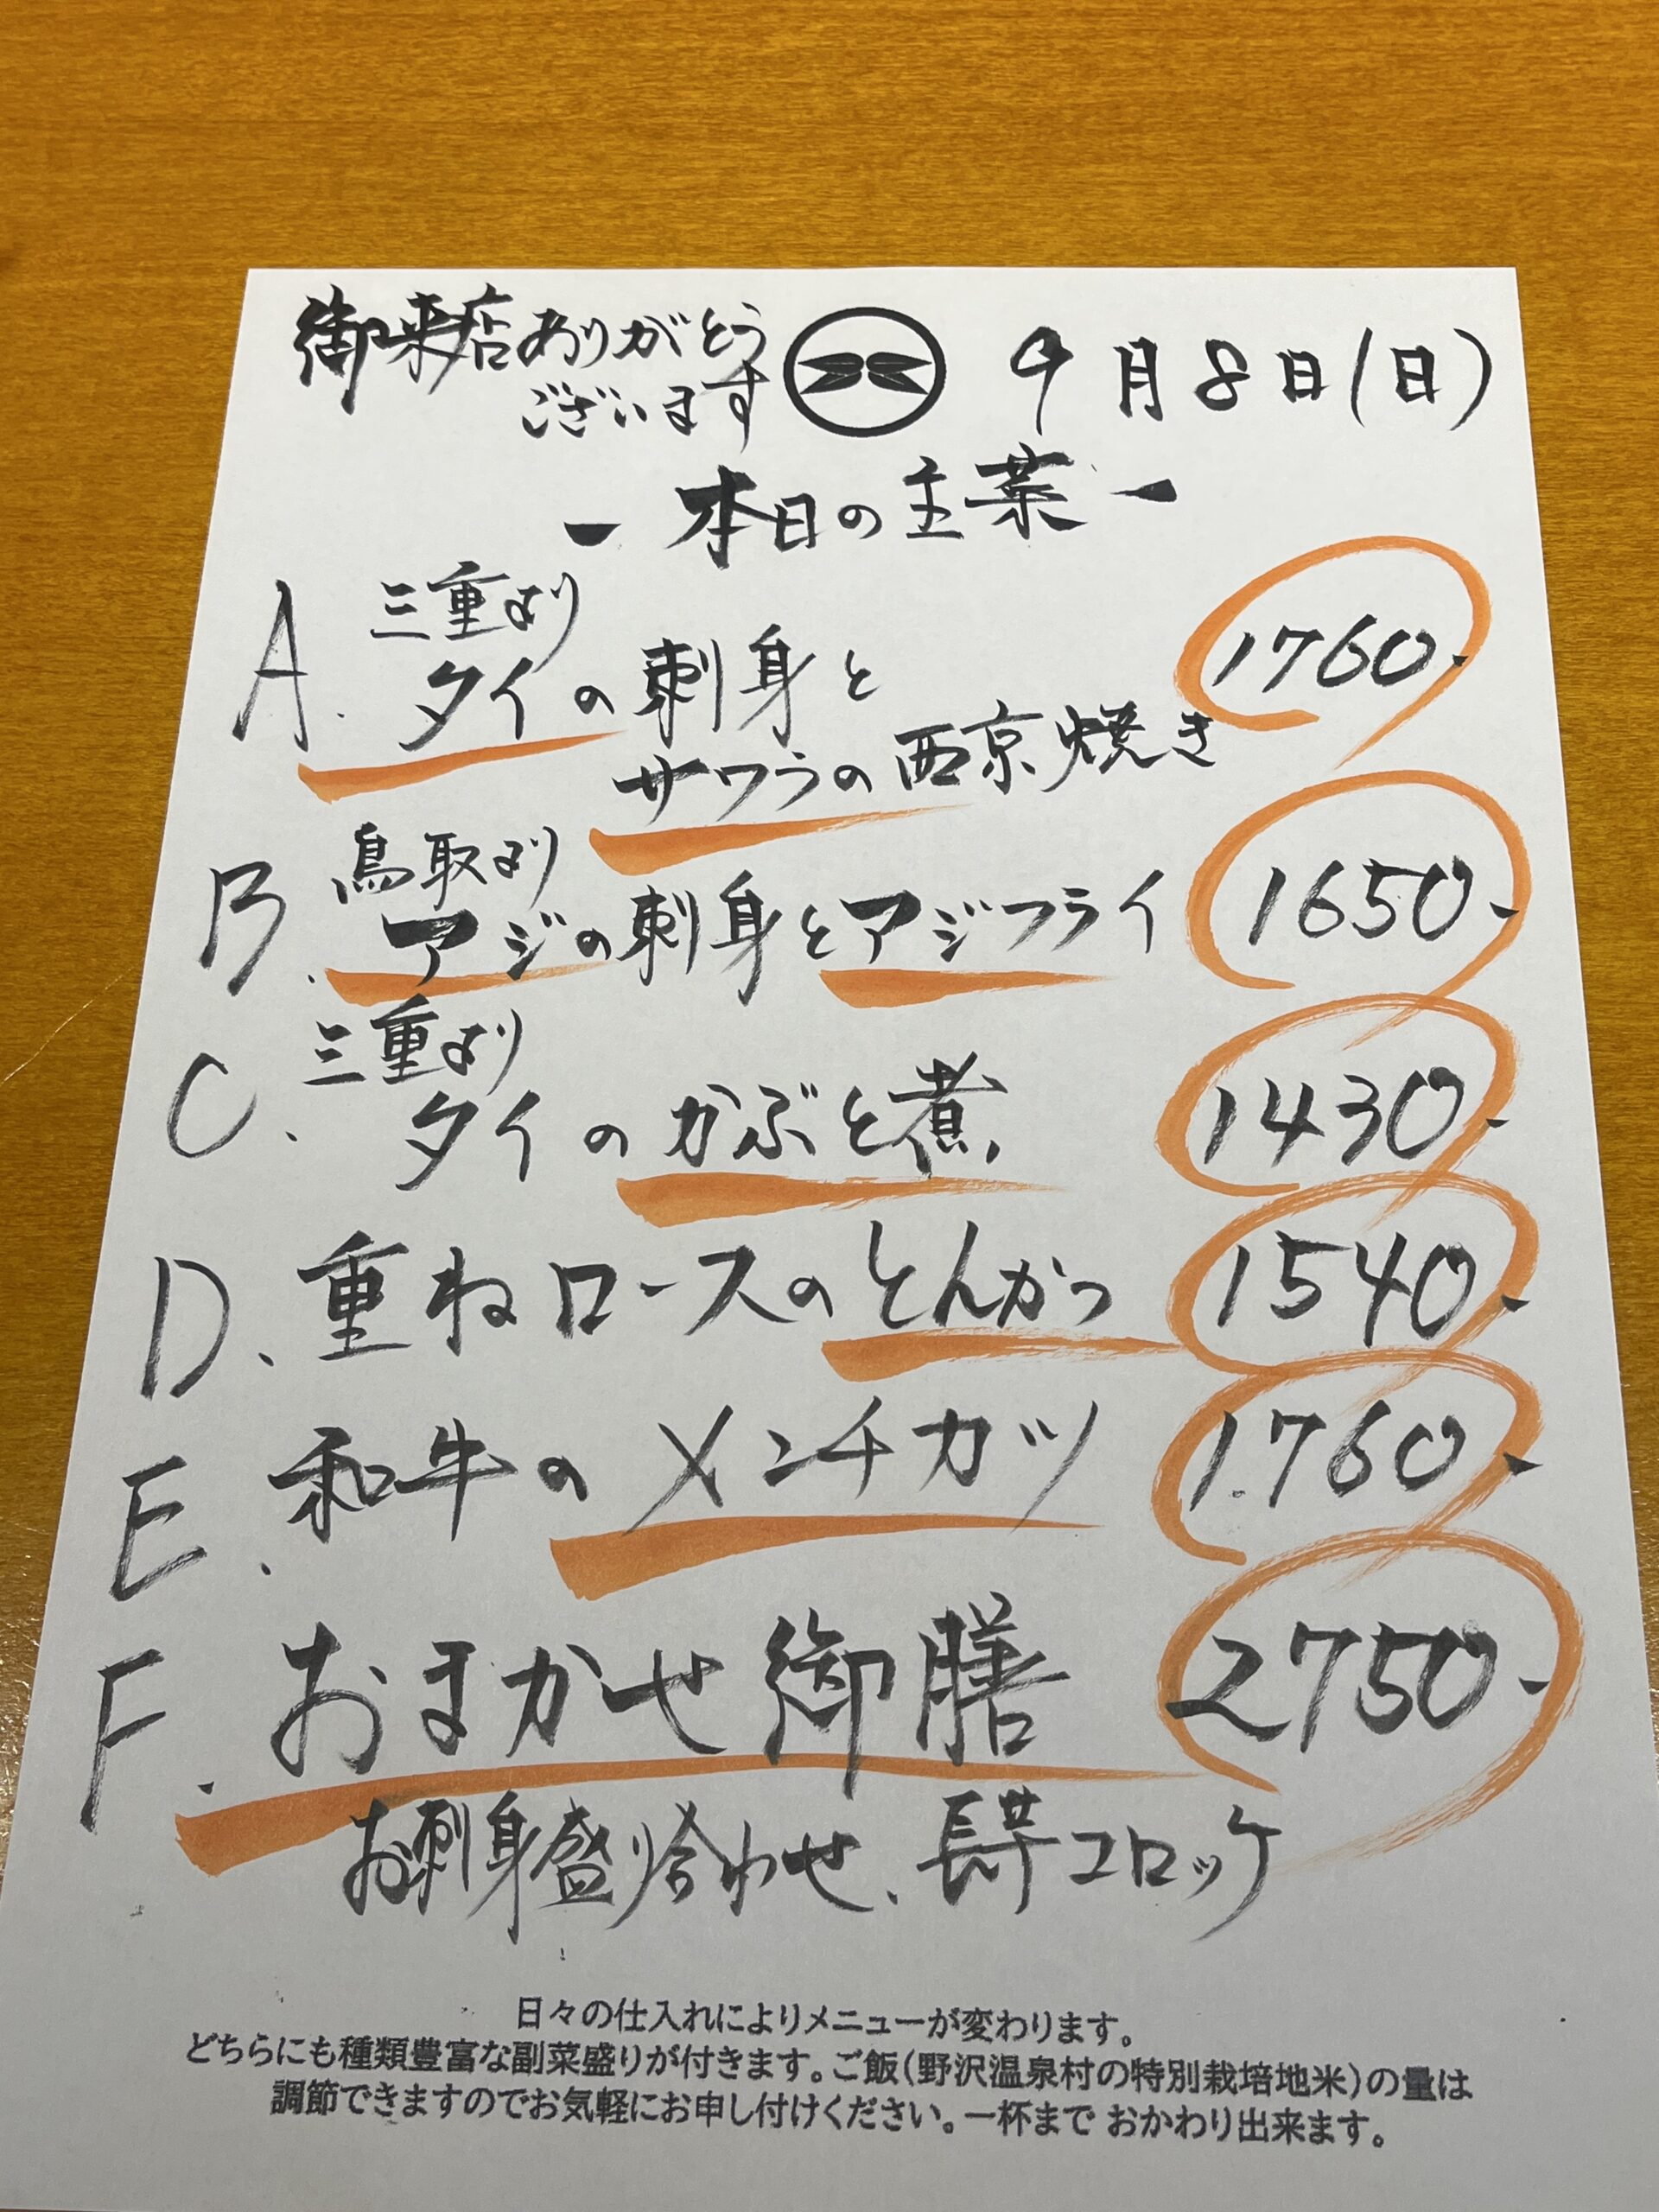 御来店ありがとう
ございます
9月8日(日)
- 本日の主菜 -
A. 三重より
タイの刺身と
サワラの西京焼き
1760-
B. 鳥取より
アジの刺身とアジフライ 1650-
C. 三重より
タイのかぶと煮 1430-
D. 重ねロースのとんかつ 1540-
E. 和牛のメンチカツ 1760-
F. おまかせ御膳 2750-
お刺身盛り合わせ、長芋コロッケ
日々の仕入れによりメニューが変わります。
どちらにも種類豊富な副菜盛りが付きます。ご飯(野沢温泉村の特別栽培地米)の量は
調節できますのでお気軽にお申し付けください。一杯まで おかわり出来ます。